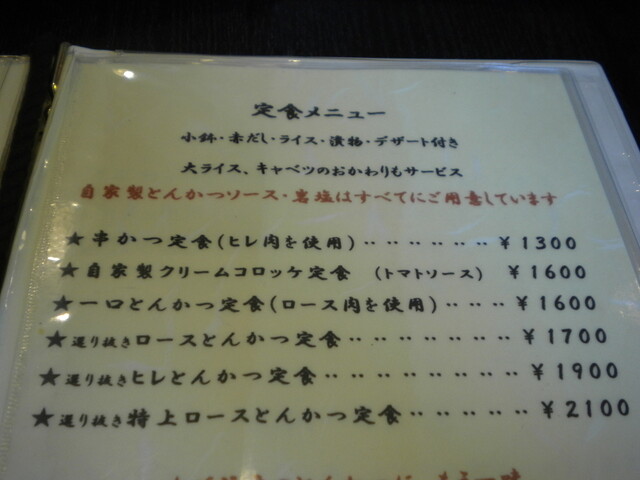 定食メニュー
小鉢・赤だし・ライス・漬物・デザート付き
大ライス、キャベツのおかわりもサービス
自家製とんかつソース・岩塩はすべてにご用意しています
★串かつ定食(ヒレ肉を使用)‥‥‥‥‥‥¥1300
★自家製クリームコロッケ定食 (トマトソース) ¥1600
★一口とんかつ定食(ロース肉を使用)‥‥‥¥1600
★選り抜きロースとんかつ定食‥‥‥‥‥‥¥1700
★選り抜きヒレとんかつ定食‥‥‥‥‥‥‥¥1900
★選り抜き特上ロースとんかつ定食‥‥‥‥‥‥¥2100